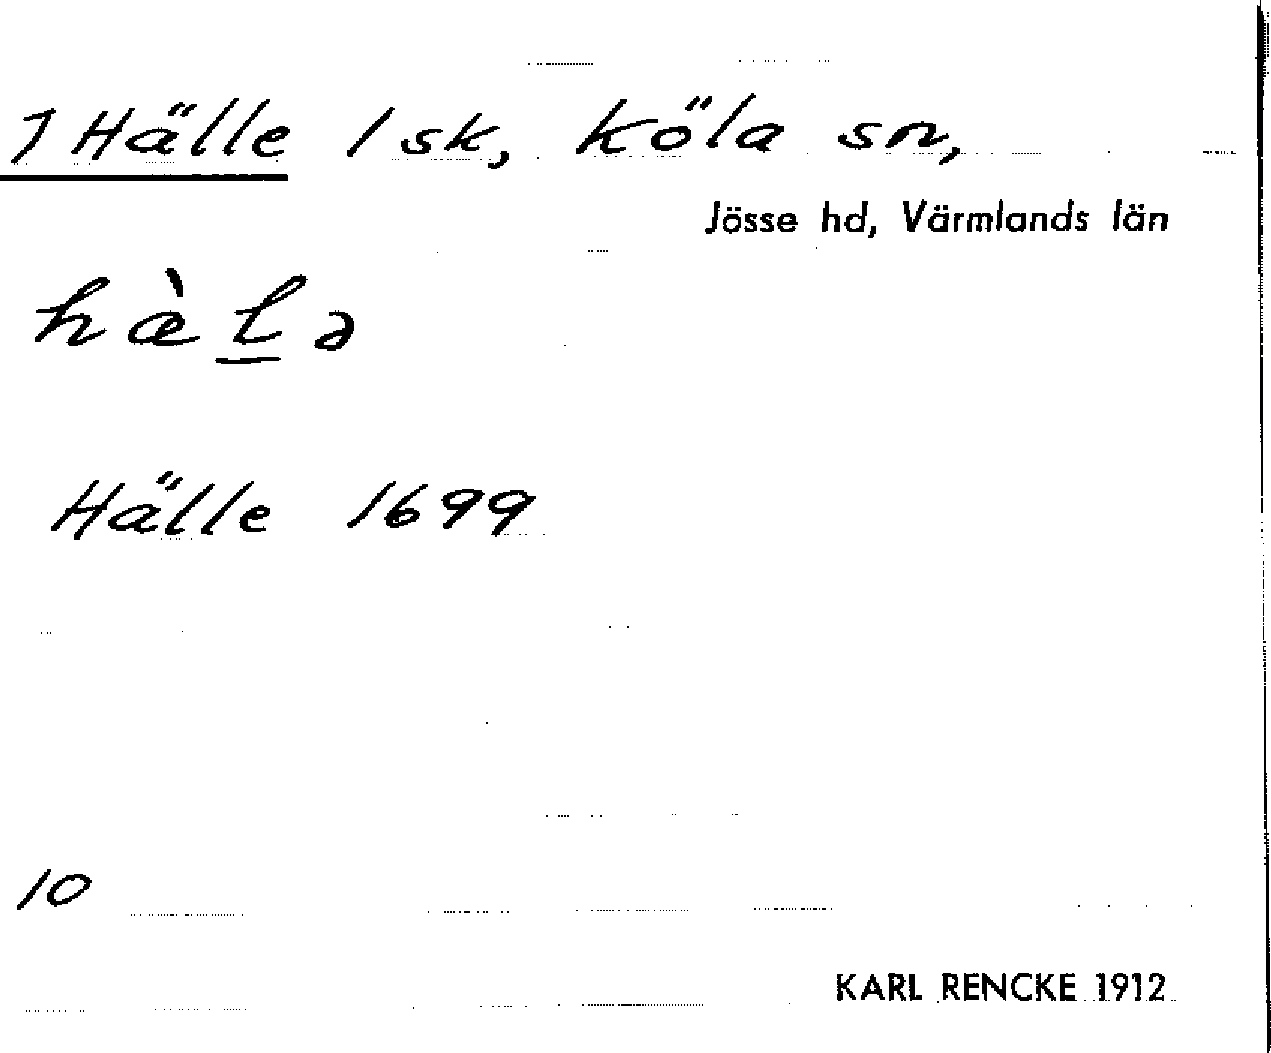 1 Hälle 1 sk, Köla sn,
Jösse hd, Värmlands län
hæ̀l̲ə
Hälle 1699
10
KARL RENCKE 1912